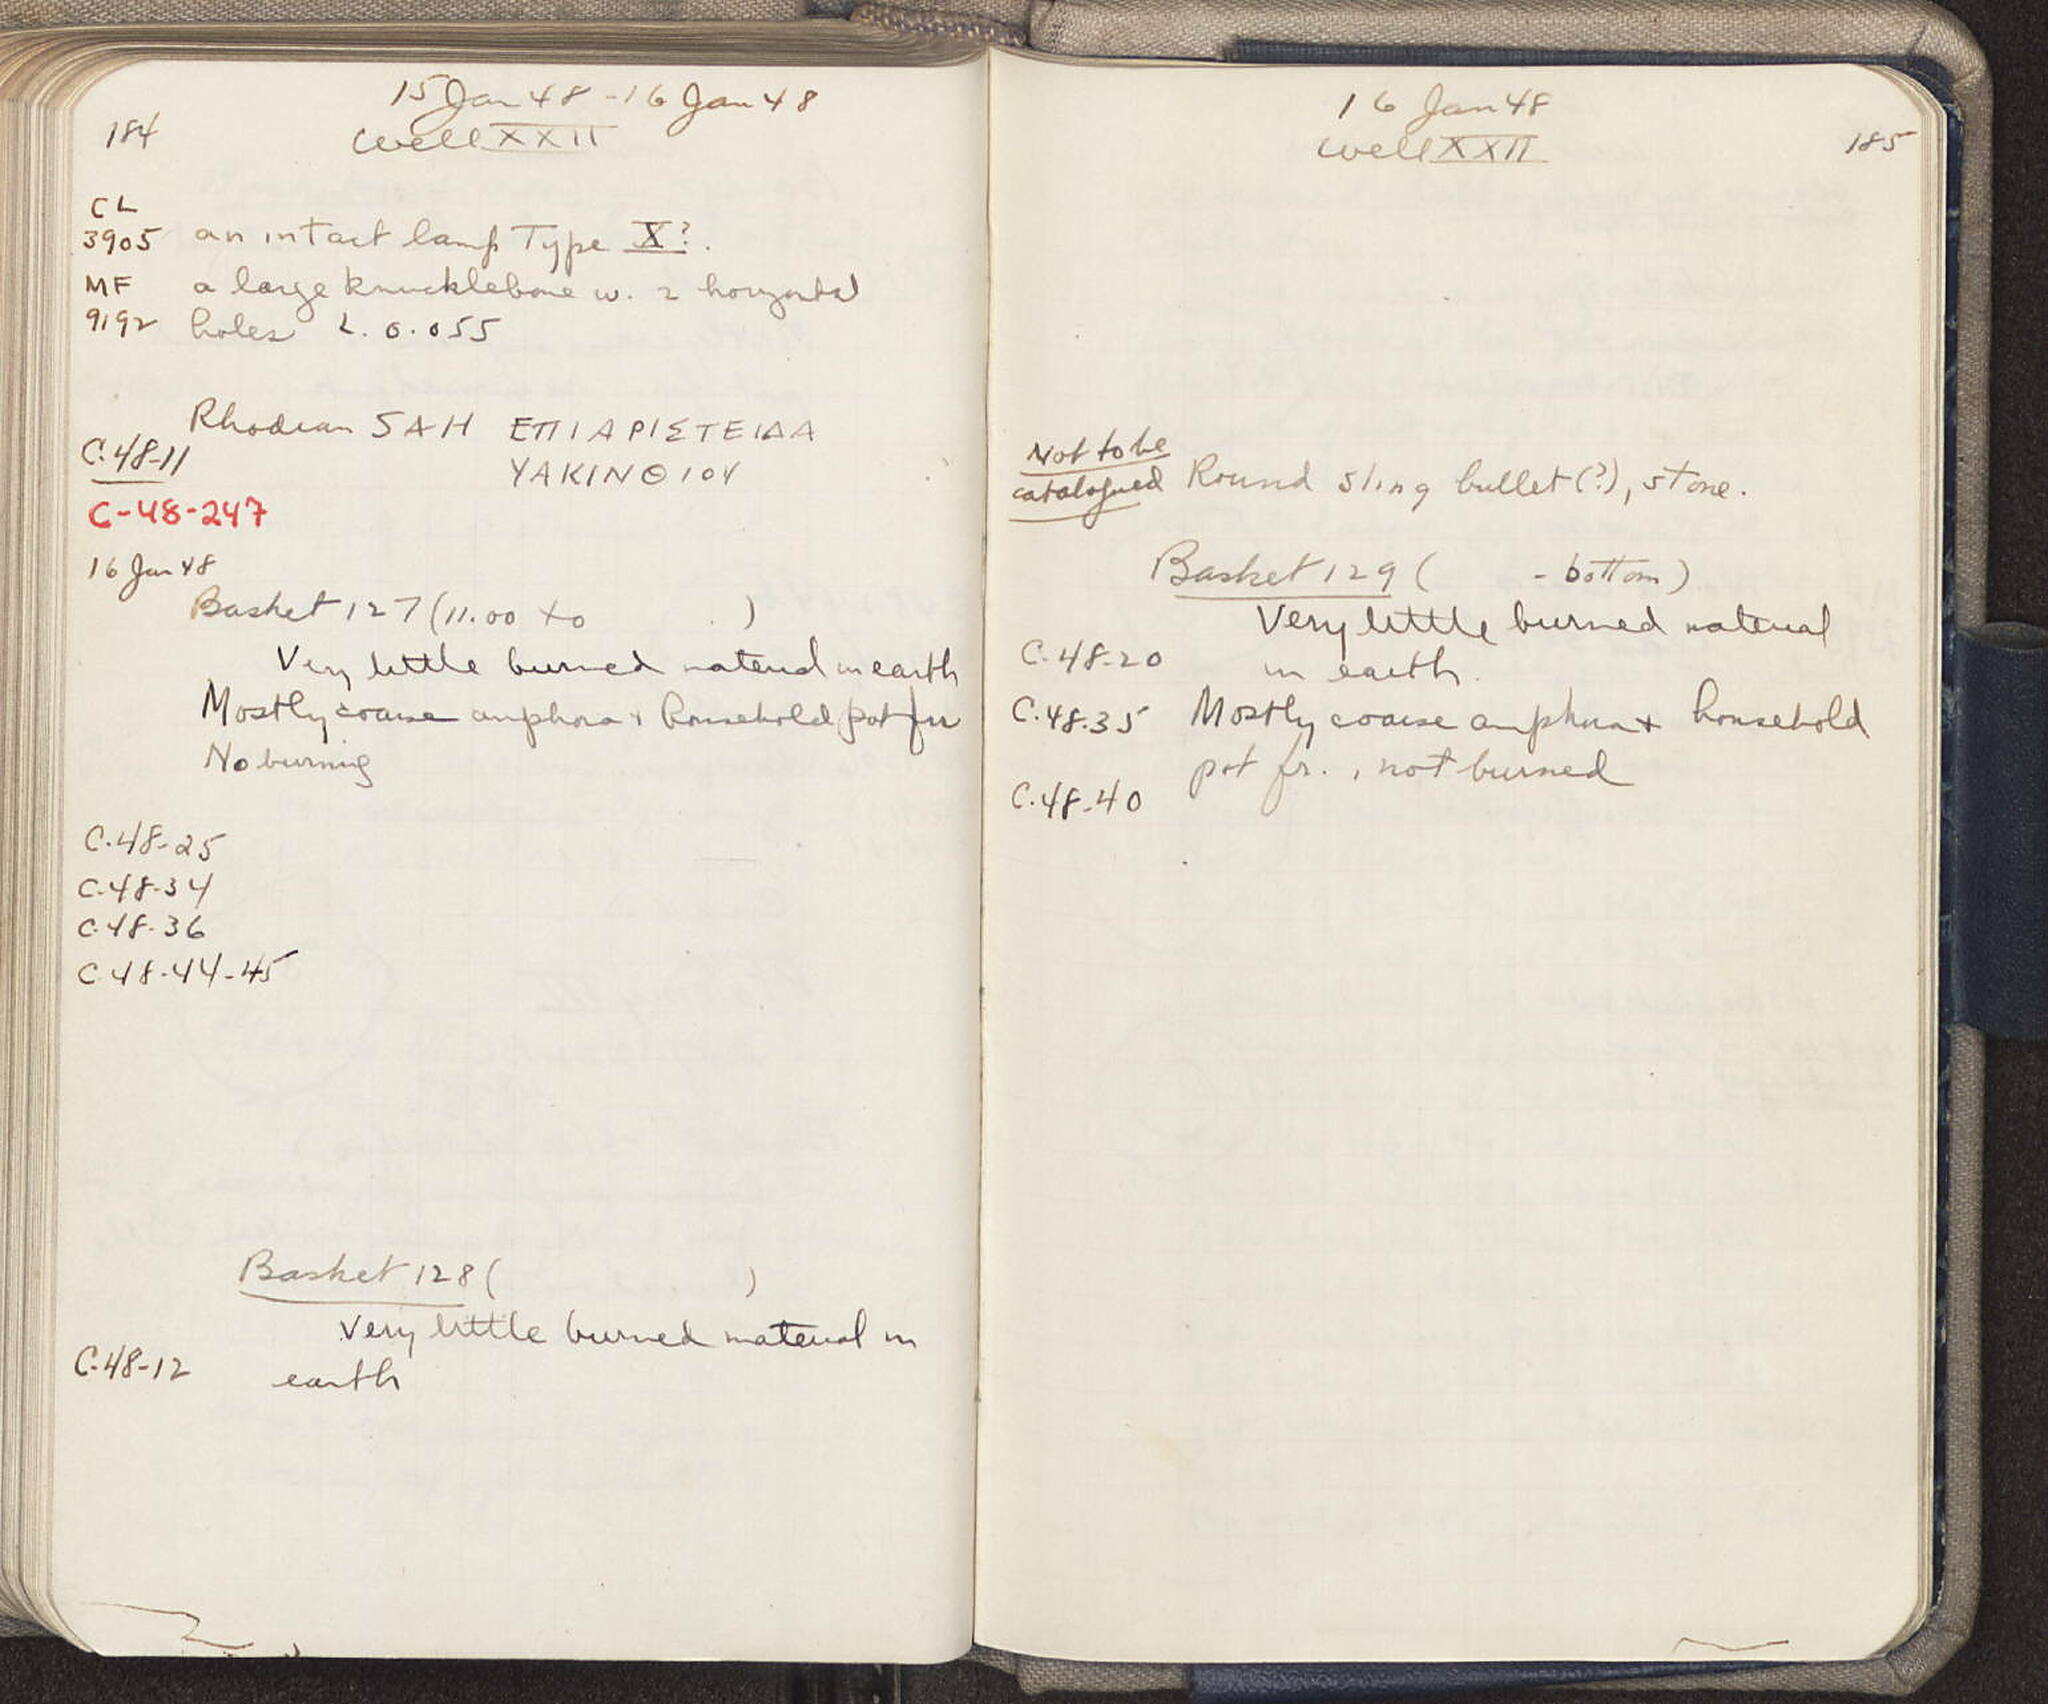 184
15 Jan 48 - 16 Jan 48
Well XXII
CL
3905 an intact lamp Type X?.
MF a large knucklebone w. 2 horizontal
9192 holes L. 0.055
Rhodian SAH ΕΠΙΑΡΙΣΤΕΙΔΑ
C.48-11 ΥΑΚΙΝΘΙΟΥ
C-48-247
16 Jan 48
Basket 127 (11.00 to )
Very little burned material in earth
Mostly coarse amphora + household pot fr
No burning
C.48-25
C.48-34
C.48-36
C.48-44-45
Basket 128 ( )
Very little burned material in
C.48-12 earth
16 Jan 48
Well XXII
185
Not to be
catalogued Round sling bullet (?), stone.
Basket 129 ( - bottom)
Very little burned material
C.48-20 in earth.
C.48.35 Mostly coarse amphora + household
pot fr., not burned
C.48-40